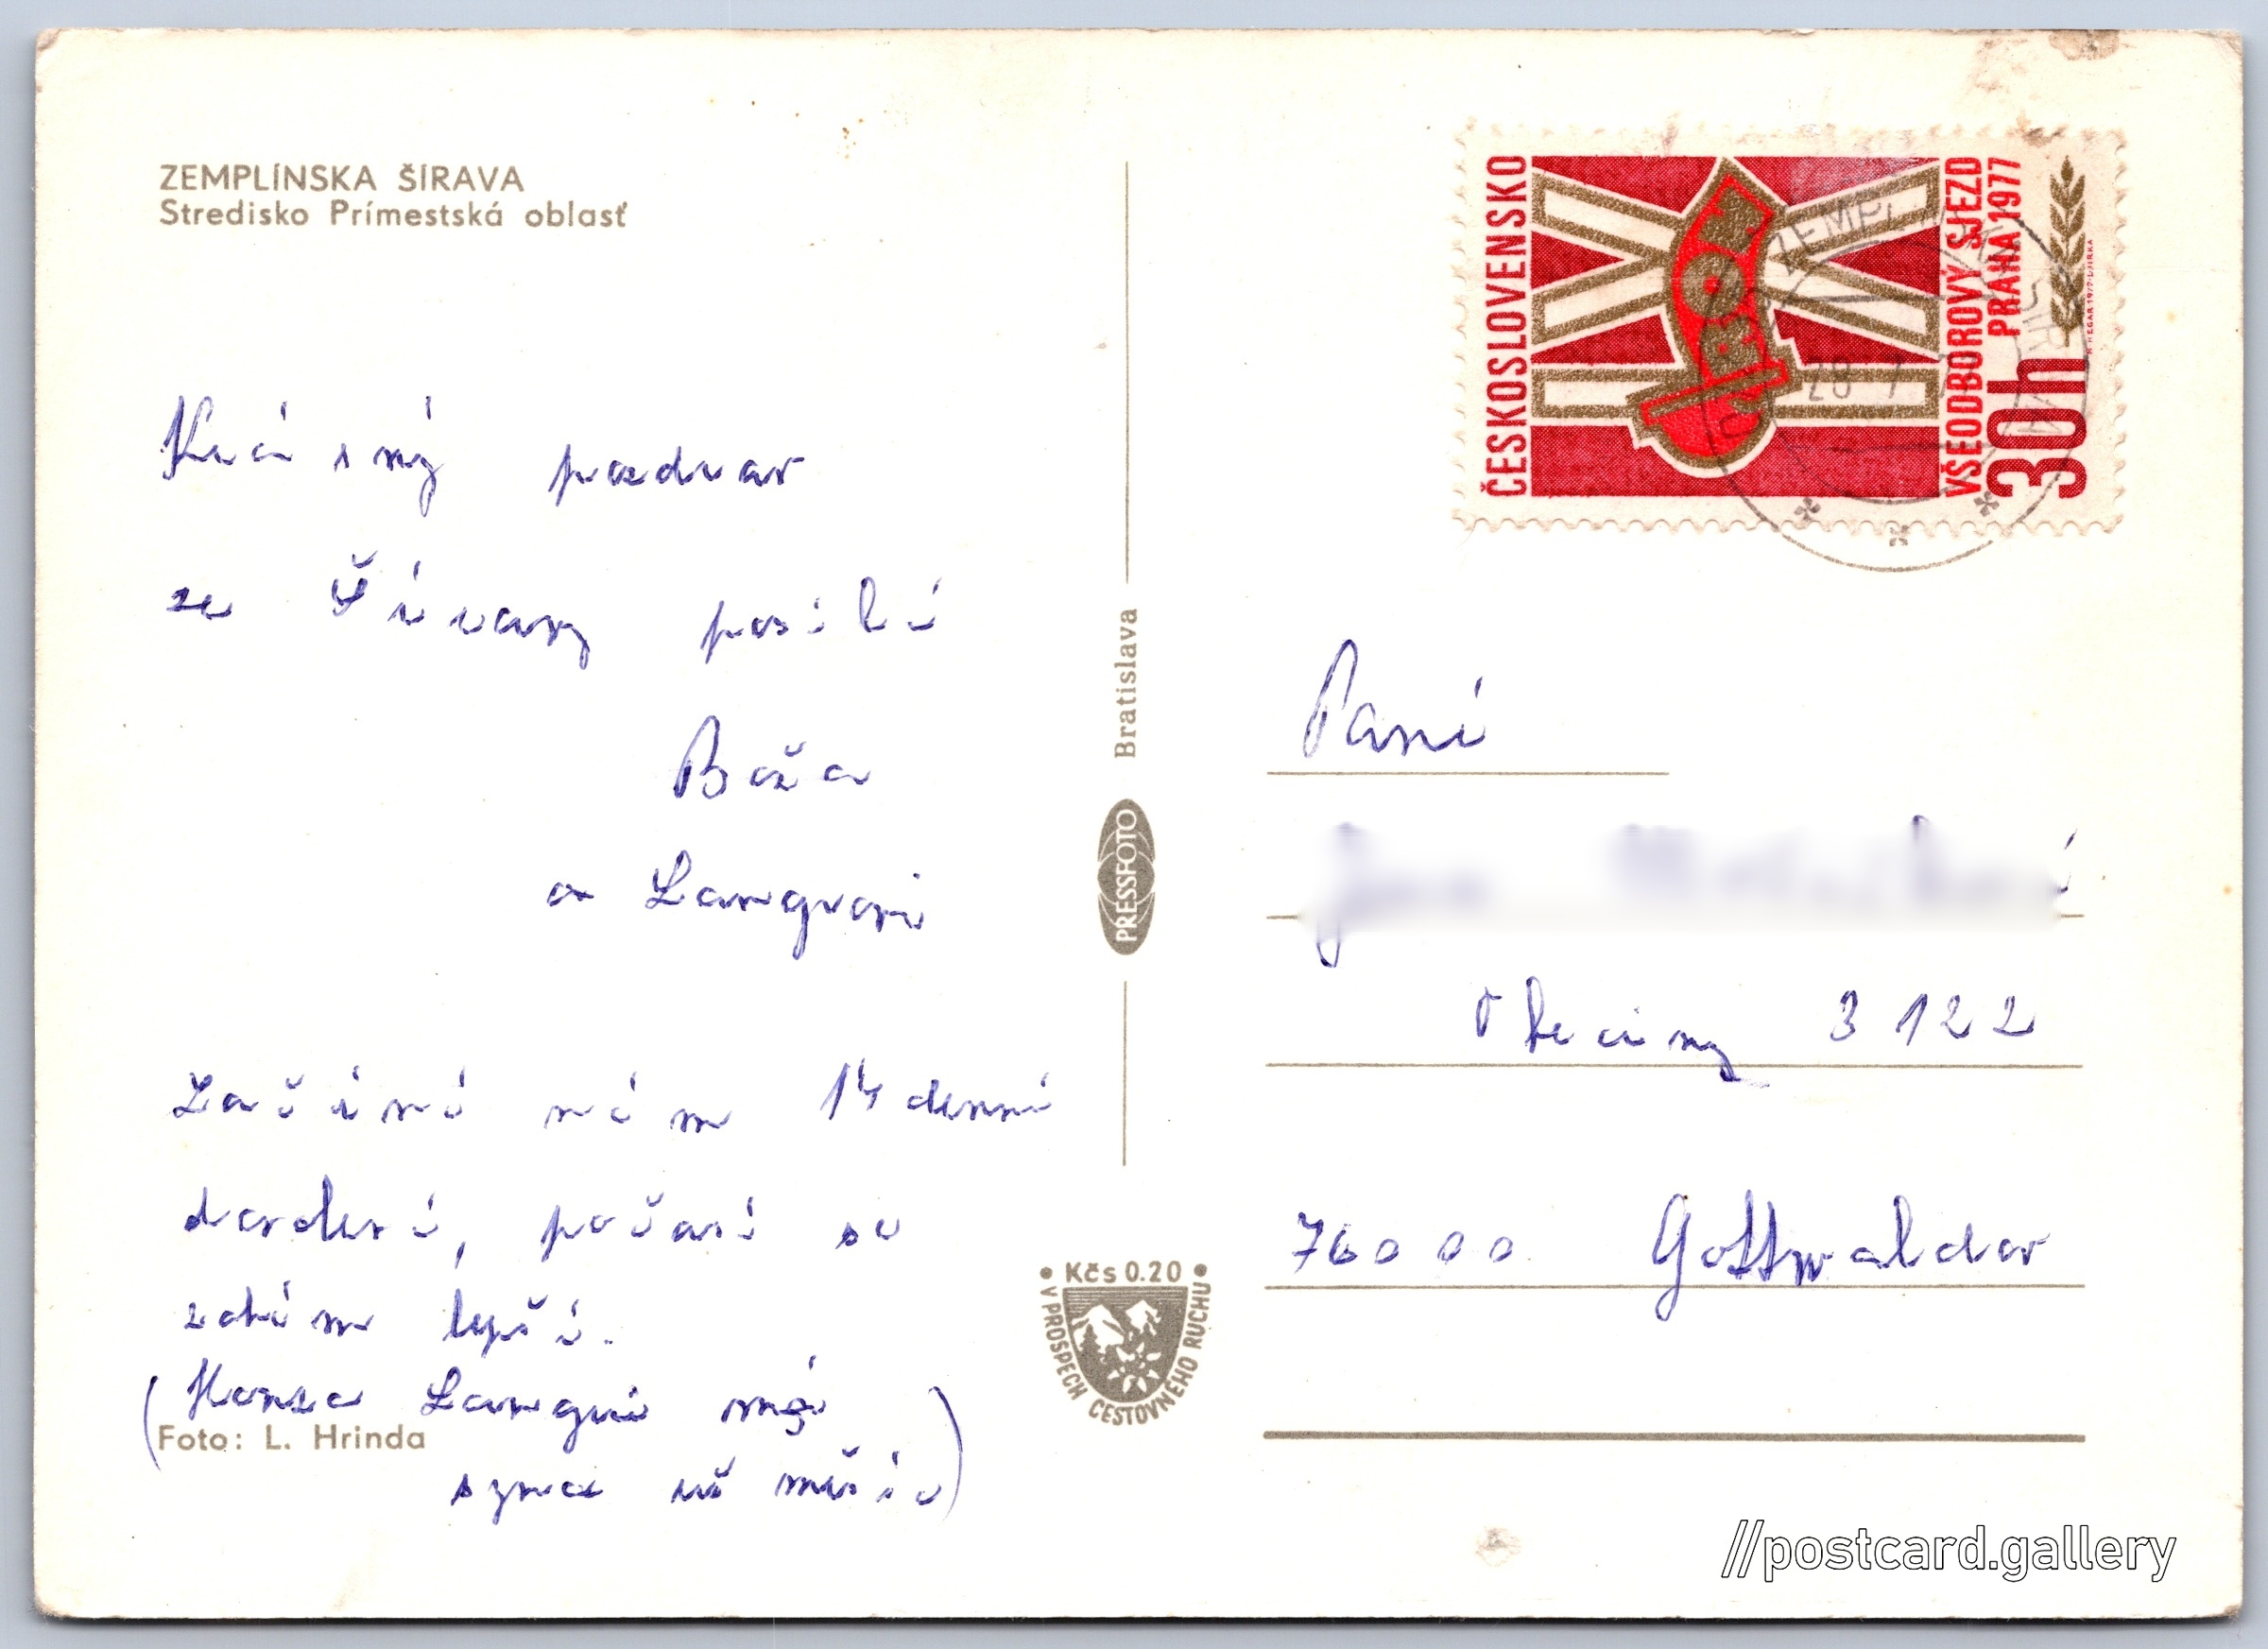 ZEMPLÍNSKA ŠÍRAVA
Stredisko Prímestská oblasť
Krásný pozdrav
ze Šíravy posílá
Boža
a Langrovi
Začíná nám 14 denní
dovolená, počasí se
zatím lepší.
(Honza Langr má
syna už měsíc)
Foto: L. Hrinda
Bratislava
PRESSFOTO
• Kčs 0.20 •
V PROSPECH CESTOVNÉHO RUCHU
ČESKOSLOVENSKO
ÚRO
VŠEODBOROVÝ SJEZD
PRAHA 1977
30h
ZEMPLÍN
28 7
Paní
3122
76000 Gottwaldov
//postcard.gallery